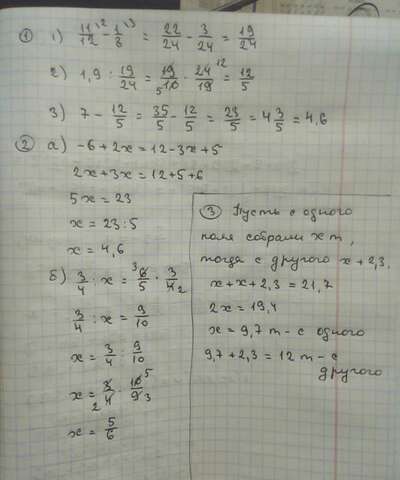 ① 1) 11/12 \2 - 1/8 \3 = 22/24 - 3/24 = 19/24
2) 1,9 : 19/24 = 19/10 · 24/19 = 12/5
3) 7 - 12/5 = 35/5 - 12/5 = 23/5 = 4 3/5 = 4,6
② а) -6 + 2x = 12 - 3x + 5
2x + 3x = 12 + 5 + 6
5x = 23
x = 23 : 5
x = 4,6
б) 3/4 : x = 6/5 · 3/4
3/4 : x = 9/10
x = 3/4 : 9/10
x = 3/4 · 10/9
x = 5/6
③ Пусть с одного
поля собрали x т,
тогда с другого x + 2,3.
x + x + 2,3 = 21,7
2x = 19,4
x = 9,7 т - с одного
9,7 + 2,3 = 12 т - с
другого